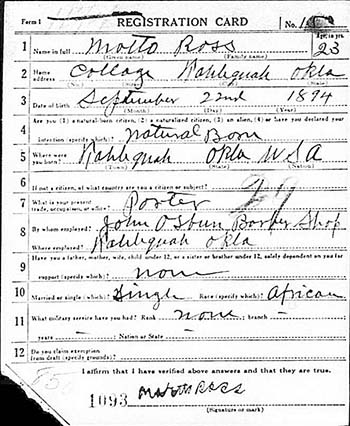 Form 1
REGISTRATION CARD No.
Age, in yrs.
1 Name in full Motto Ross 23
(Given name) (Family name)
2 Home address College Tahlequah Okla
3 Date of birth September 22nd 1894
(Month) (Day) (Year)
Are you (1) a natural-born citizen, (2) a naturalized citizen, (3) an alien, (4) or have you declared your
4 intention (specify which)? Natural Born
5 Where were you born? Tahlequah Okla USA
(Town) (State) (Nation)
6 If not a citizen, of what country are you a citizen or subject?
7 What is your present trade, occupation, or office? Porter
8 By whom employed? John Osbun Barber Shop
Where employed? Tahlequah Okla
Have you a father, mother, wife, child under 12, or a sister or brother under 12, solely dependent on you for
9 support (specify which)? none
10 Married or single (which)? Single Race (specify which)? African
11 What military service have you had? Rank none ; branch —
years — ; Nation or State —
12 Do you claim exemption from draft (specify grounds)?
I affirm that I have verified above answers and that they are true.
1093
(Signature or mark)